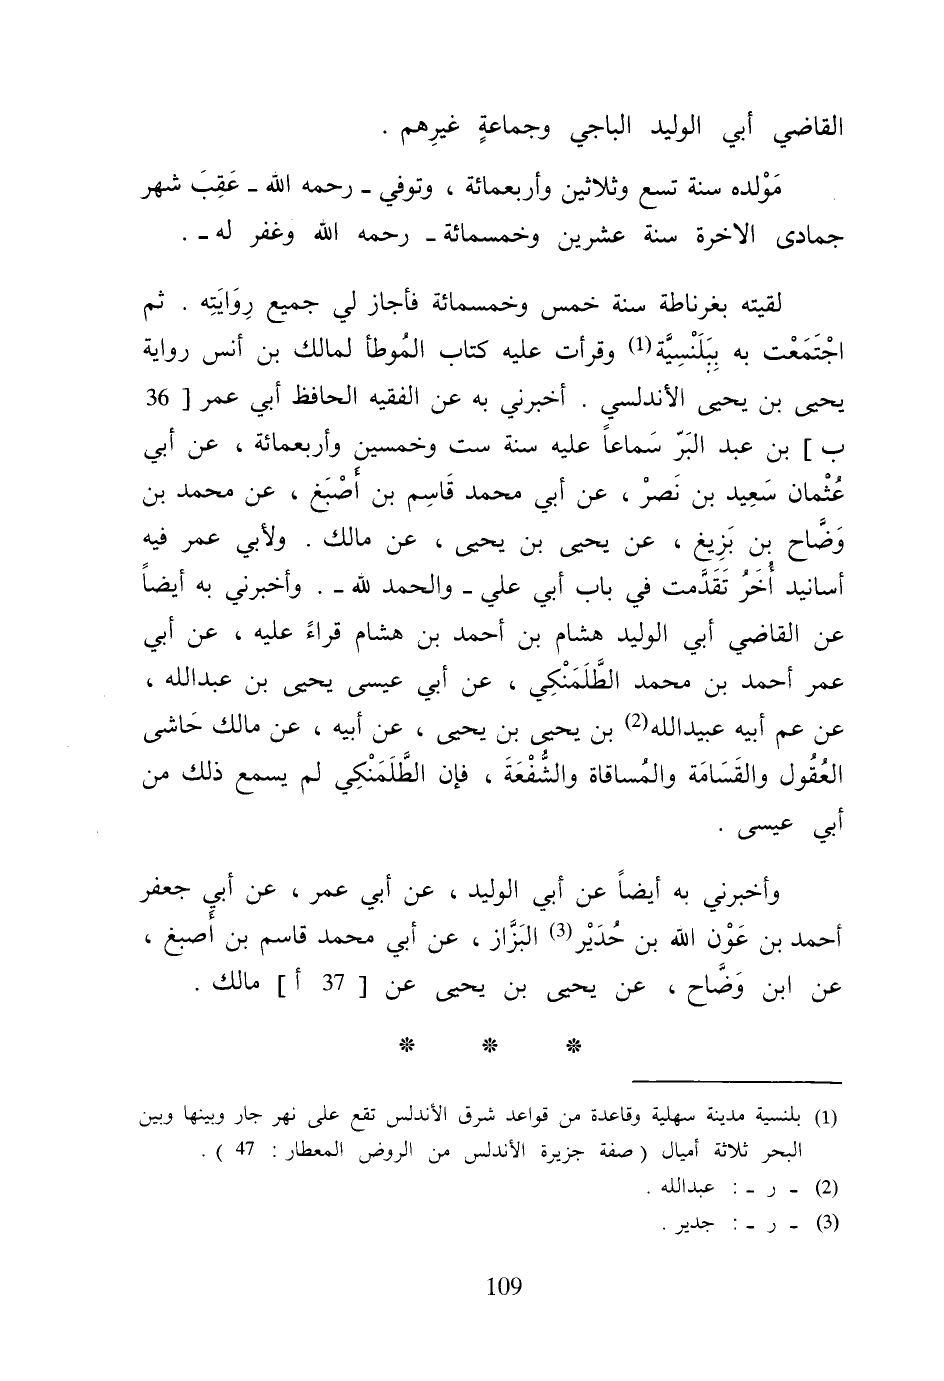 القاضي أبي الوليد الباجي وجماعةٍ غيرِهم .
مَوْلده سنة تسع وثلاثين وأربعمائة ، وتوفي ـ رحمه الله ـ عَقِبَ شهر
جمادى الاخرة سنة عشرين وخمسمائة ـ رحمه الله وغفر له ـ .
لقيته بغرناطة سنة خمس وخمسمائة فأجاز لي جميع رِوَايَتِه . ثم
اجْتَمَعْت به بِبَلَنْسِيَّة(1) وقرأت عليه كتاب المُوطأ لمالك بن أنس رواية
يحيى بن يحيى الأندلسي . أخبرني به عن الفقيه الحافظ أبي عمر [ 36
ب ] بن عبد البَرّ سَماعاً عليه سنة ست وخمسين وأربعمائة ، عن أبي
عُثْمان سَعِيد بن نَصرْ ، عن أبي محمد قَاسِم بن أَصْبَغ ، عن محمد بن
وَضَّاح بن بَزِيغ ، عن يحيى بن يحيى ، عن مالك . ولأبي عمر فيه
أسانيد أُخَرُ تَقَدَّمت في باب أبي علي ـ والحمد لله ـ . وأخبرني به أيضاً
عن القاضي أبي الوليد هشام بن أحمد بن هشام قراءً عليه ، عن أبي
عمر أحمد بن محمد الطَّلَمَنْكِي ، عن أبي عيسى يحيى بن عبدالله ،
عن عم أبيه عبيدالله(2) بن يحيى بن يحيى ، عن أبيه ، عن مالك حَاشى
العُقُول والقَسَامَة والمُساقاة والشُّفْعَةَ ، فإن الطَّلَمَنْكِي لم يسمع ذلك من
أبي عيسى .
وأخبرني به أيضاً عن أبي الوليد ، عن أبي عمر ، عن أبي جعفر
أحمد بن عَوْن الله بن حُدَيْر(3) البَزَّاز ، عن أبي محمد قاسم بن أَصبغ ،
عن ابن وَضَّاح ، عن يحيى بن يحيى عن [ 37 أ ] مالك .
* * *
(1) بلنسية مدينة سهلية وقاعدة من قواعد شرق الأندلس تقع على نهر جار وبينها وبين
البحر ثلاثة أميال ( صفة جزيرة الأندلس من الروض المعطار : 47 ) .
(2) ـ ر ـ : عبدالله .
(3) ـ ر ـ : جدير .
109